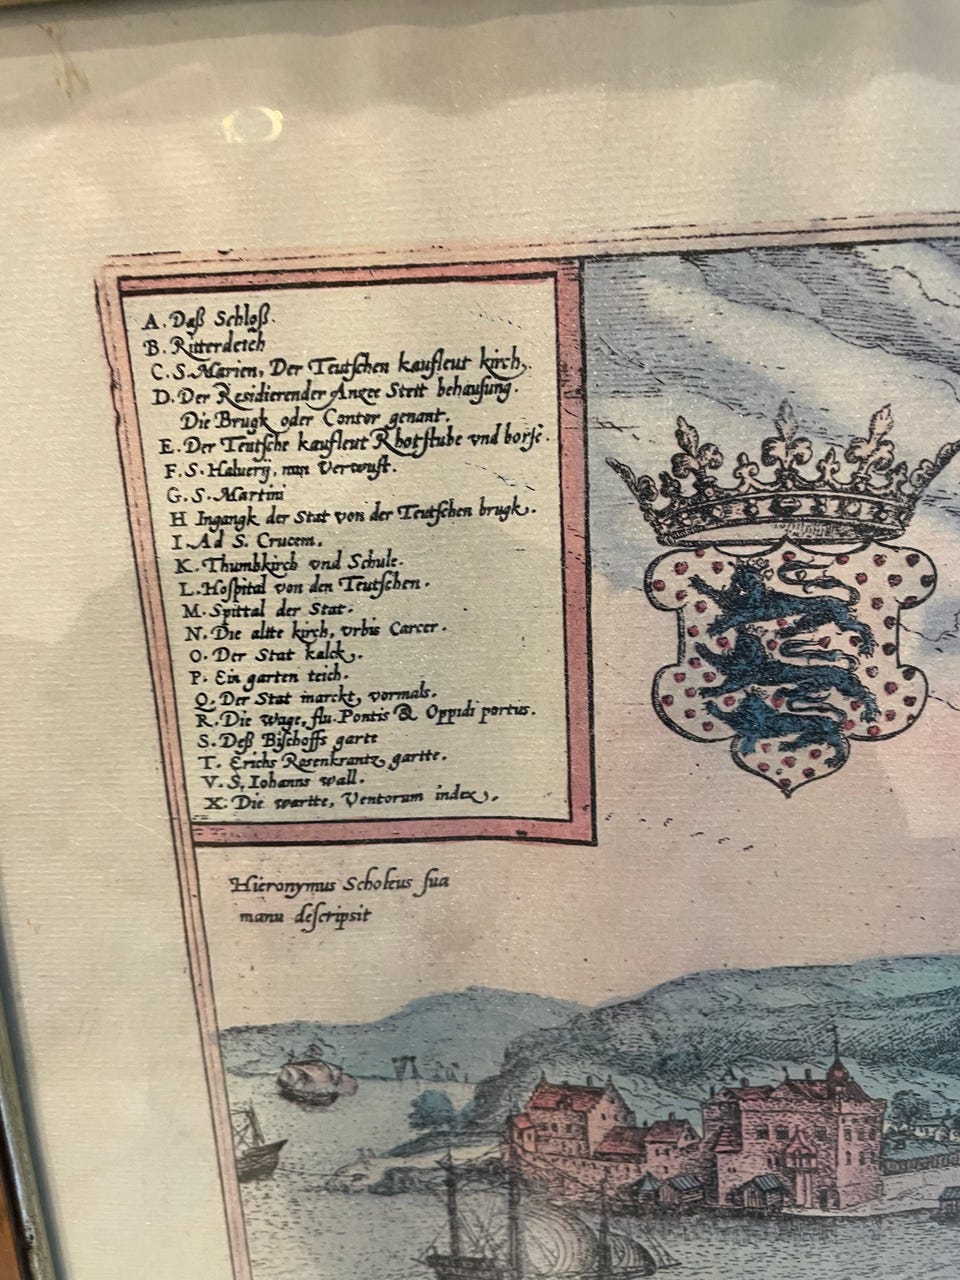 A. Daß Schloß.
B. Ritterdeich
C. S. Marien, Der Teutschen kaufleut kirch,.
D. Der Residierender Anzee Stett behausung.
Die Brugk oder Contor genant.
E. Der Teutsche kaufleut Rhotstube vnd borse.
F. S. Haluerij, nun Verwust.
G. S. Martini
H Ingangk der Stat von der Teutschen brugk.
I. Ad S. Crucem.
K. Thumbkirch vnd Schule.
L. Hospital von den Teutschen.
M. Spittal der Stat.
N. Die altte kirch, vrbis Carcer.
O. Der Stat kalck,.
P. Ein garten teich.
Q. Der Stat marckt, vormals.
R. Die Wage, flu. Pontis & Oppidi portus.
S. Deß Bischoffs garte
T. Erichs Rosenkrantz, gartte.
V. S. Iohanns wall.
X. Die wartte, Ventorum index,.
Hieronymus Scholeus sua
manu descripsit